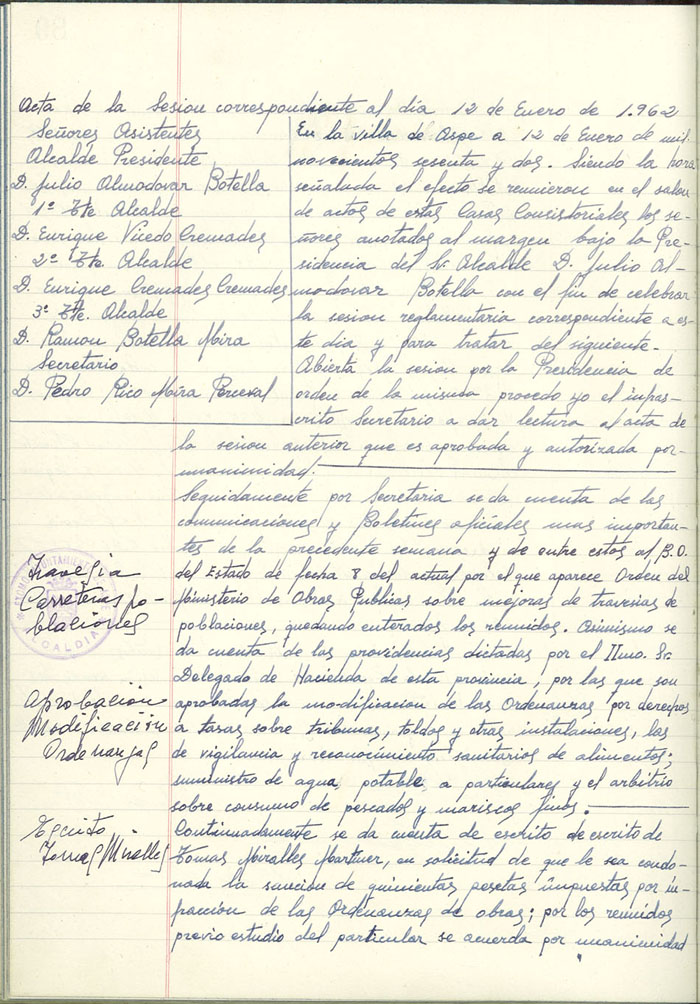 Acta de la Sesion correspondiente al dia 12 de Enero de 1.962
Señores Asistentes
Alcalde Presidente
D. Julio Almodovar Botella
1º Tte Alcalde
D. Enrique Vicedo Cremades
2º Tte. Alcalde
D. Enrique Cremades Cremades
3º Tte. Alcalde
D. Ramon Botella Mira
Secretario
D. Pedro Rico Mira Perceval
En la villa de Aspe a 12 de Enero de mil
novecientos sesenta y dos. Siendo la hora
señalada el efecto se reunieron en el salon
de actos de estas Casas Consistoriales los se-
ñores anotados al margen bajo la Pre-
sidencia del Sr. Alcalde D. Julio Al-
modovar Botella con el fin de celebrar
la sesion reglamentaria correspondiente a es-
te dia y para tratar del siguiente.
Abierta la sesion por la Presidencia de
orden de la misma procedo yo el infras-
crito Secretario a dar lectura al acta de
la sesion anterior que es aprobada y autorizada por
unanimidad.
Seguidamente por Secretaria se da cuenta de las
comunicaciones y Boletines oficiales mas importan-
tes de la precedente semana y de entre estos al B.O.
del Estado de fecha 8 del actual por el que aparece Orden del
Ministerio de Obras Publicas sobre mejoras de travesias de
poblaciones, quedando enterados los reunidos. Asimismo se
da cuenta de las providencias dictadas por el Ilmo. Sr.
Delegado de Hacienda de esta provincia, por las que son
aprobadas la modificacion de las Ordenanzas por derechos
a tasas sobre tribunas, toldos y otras instalaciones, las
de vigilancia y reconocimiento sanitarios de alimentos;
suministro de agua, potable a particulares y el arbitrio
sobre consumo de pescados y mariscos finos.
Continuadamente se da cuenta de escrito de escrito de
Tomas Miralles Martiner, en solicitud de que le sea condo-
nada la sancion de quinientas pesetas impuestas por in-
fraccion de las Ordenanzas de obras; por los reunidos
previo estudio del particular se acuerda por unanimidad
Travesia
Carreteras po-
blaciones
ALCALDIA
Aprobación
Modificación
Ordenanzas
Escrito
Tomas Miralles